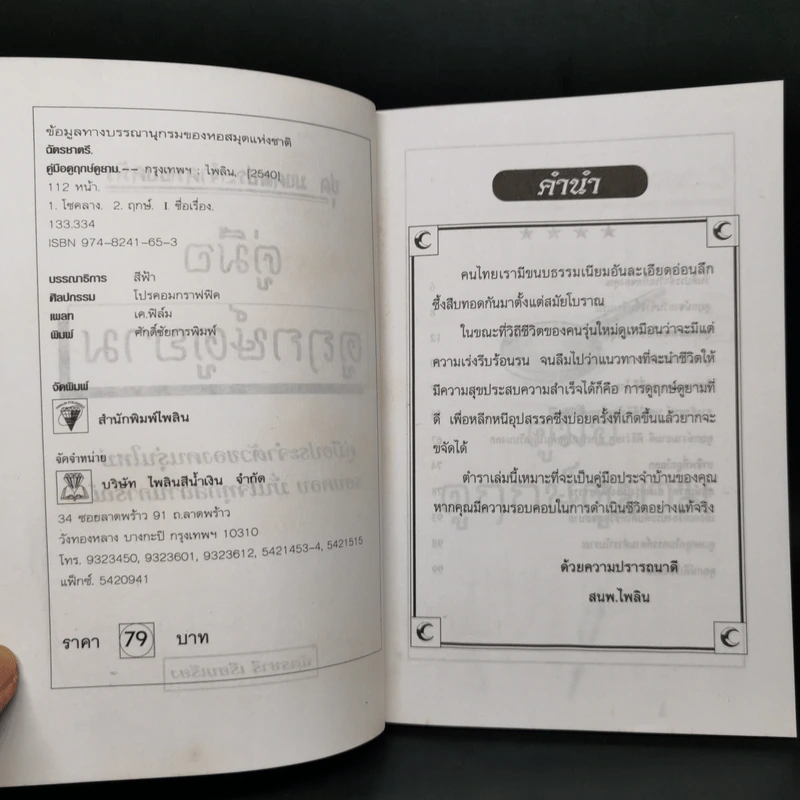 ข้อมูลทางบรรณานุกรมของหอสมุดแห่งชาติ
ฉัตรชาตรี.
คู่มือดูฤกษ์ดูยาม.-- กรุงเทพฯ : ไพลิน, (2540)
112 หน้า.
1. โชคลาง. 2. ฤกษ์. I. ชื่อเรื่อง.
133.334
ISBN 974-8241-65-3
บรรณาธิการ สีฟ้า
ศิลปกรรม โปรคอมกราฟฟิค
เพลท เค.ฟิล์ม
พิมพ์ ศักดิ์ชัยการพิมพ์
จัดพิมพ์
สำนักพิมพ์ไพลิน
จัดจำหน่าย
บริษัท ไพลินสีน้ำเงิน จำกัด
34 ซอยลาดพร้าว 91 ถ.ลาดพร้าว
วังทองหลาง บางกะปิ กรุงเทพฯ 10310
โทร. 9323450, 9323601, 9323612, 5421453-4, 5421515
แฟ็กซ์. 5420941
ราคา 79 บาท
คำนำ
คนไทยเรามีขนบธรรมเนียมอันละเอียดอ่อนลึก
ซึ้งสืบทอดกันมาตั้งแต่สมัยโบราณ
ในขณะที่วิถีชีวิตของคนรุ่นใหม่ดูเหมือนว่าจะมีแต่
ความเร่งรีบร้อนรน จนลืมไปว่าแนวทางที่จะนำชีวิตให้
มีความสุขประสบความสำเร็จได้ก็คือ การดูฤกษ์ดูยามที่
ดี เพื่อหลีกหนีอุปสรรคซึ่งบ่อยครั้งที่เกิดขึ้นแล้วยากจะ
ขจัดได้
ตำราเล่มนี้เหมาะที่จะเป็นคู่มือประจำบ้านของคุณ
หากคุณมีความรอบคอบในการดำเนินชีวิตอย่างแท้จริง
ด้วยความปรารถนาดี
สนพ.ไพลิน